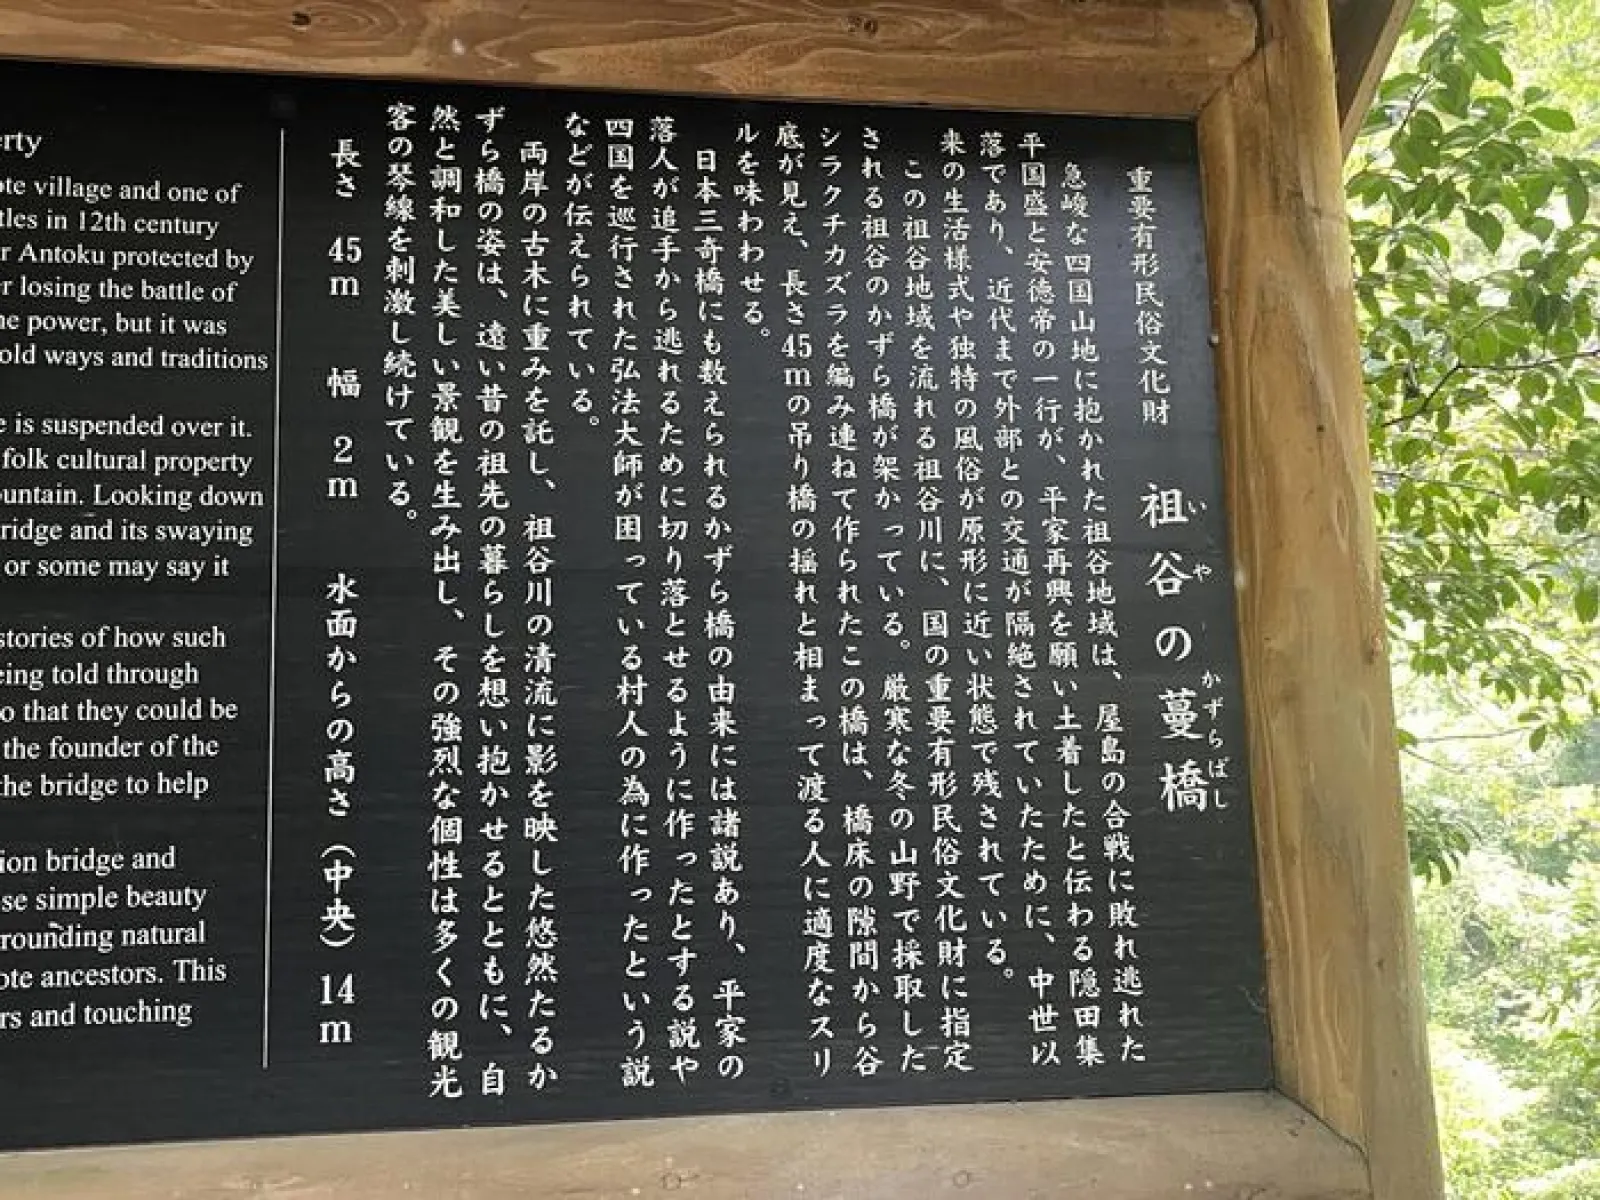 重要有形民俗文化財 祖谷の蔓橋
いや かずらばし
急峻な四国山地に抱かれた祖谷地域は、屋島の合戦に敗れ逃れた
平国盛と安徳帝の一行が、平家再興を願い土着したと伝わる隠田集
落であり、近代まで外部との交通が隔絶されていたために、中世以
来の生活様式や独特の風俗が原形に近い状態で残されている。
この祖谷地域を流れる祖谷川に、国の重要有形民俗文化財に指定
される祖谷のかずら橋が架かっている。厳寒な冬の山野で採取した
シラクチカズラを編み連ねて作られたこの橋は、橋床の隙間から谷
底が見え、長さ45mの吊り橋の揺れと相まって渡る人に適度なスリ
ルを味わわせる。
日本三奇橋にも数えられるかずら橋の由来には諸説あり、平家の
落人が追手から逃れるために切り落とせるように作ったとする説や
四国を巡行された弘法大師が困っている村人の為に作ったという説
などが伝えられている。
両岸の古木に重みを託し、祖谷川の清流に影を映した悠然たるか
ずら橋の姿は、遠い昔の祖先の暮らしを想い抱かせるとともに、自
然と調和した美しい景観を生み出し、その強烈な個性は多くの観光
客の琴線を刺激し続けている。
長さ 45m 幅 2m 水面からの高さ(中央)14m
erty
ote village and one of
tles in 12th century
r Antoku protected by
r losing the battle of
ne power, but it was
old ways and traditions
e is suspended over it.
folk cultural property
ountain. Looking down
ridge and its swaying
or some may say it
stories of how such
eing told through
o that they could be
the founder of the
the bridge to help
ion bridge and
se simple beauty
rrounding natural
ote ancestors. This
rs and touching